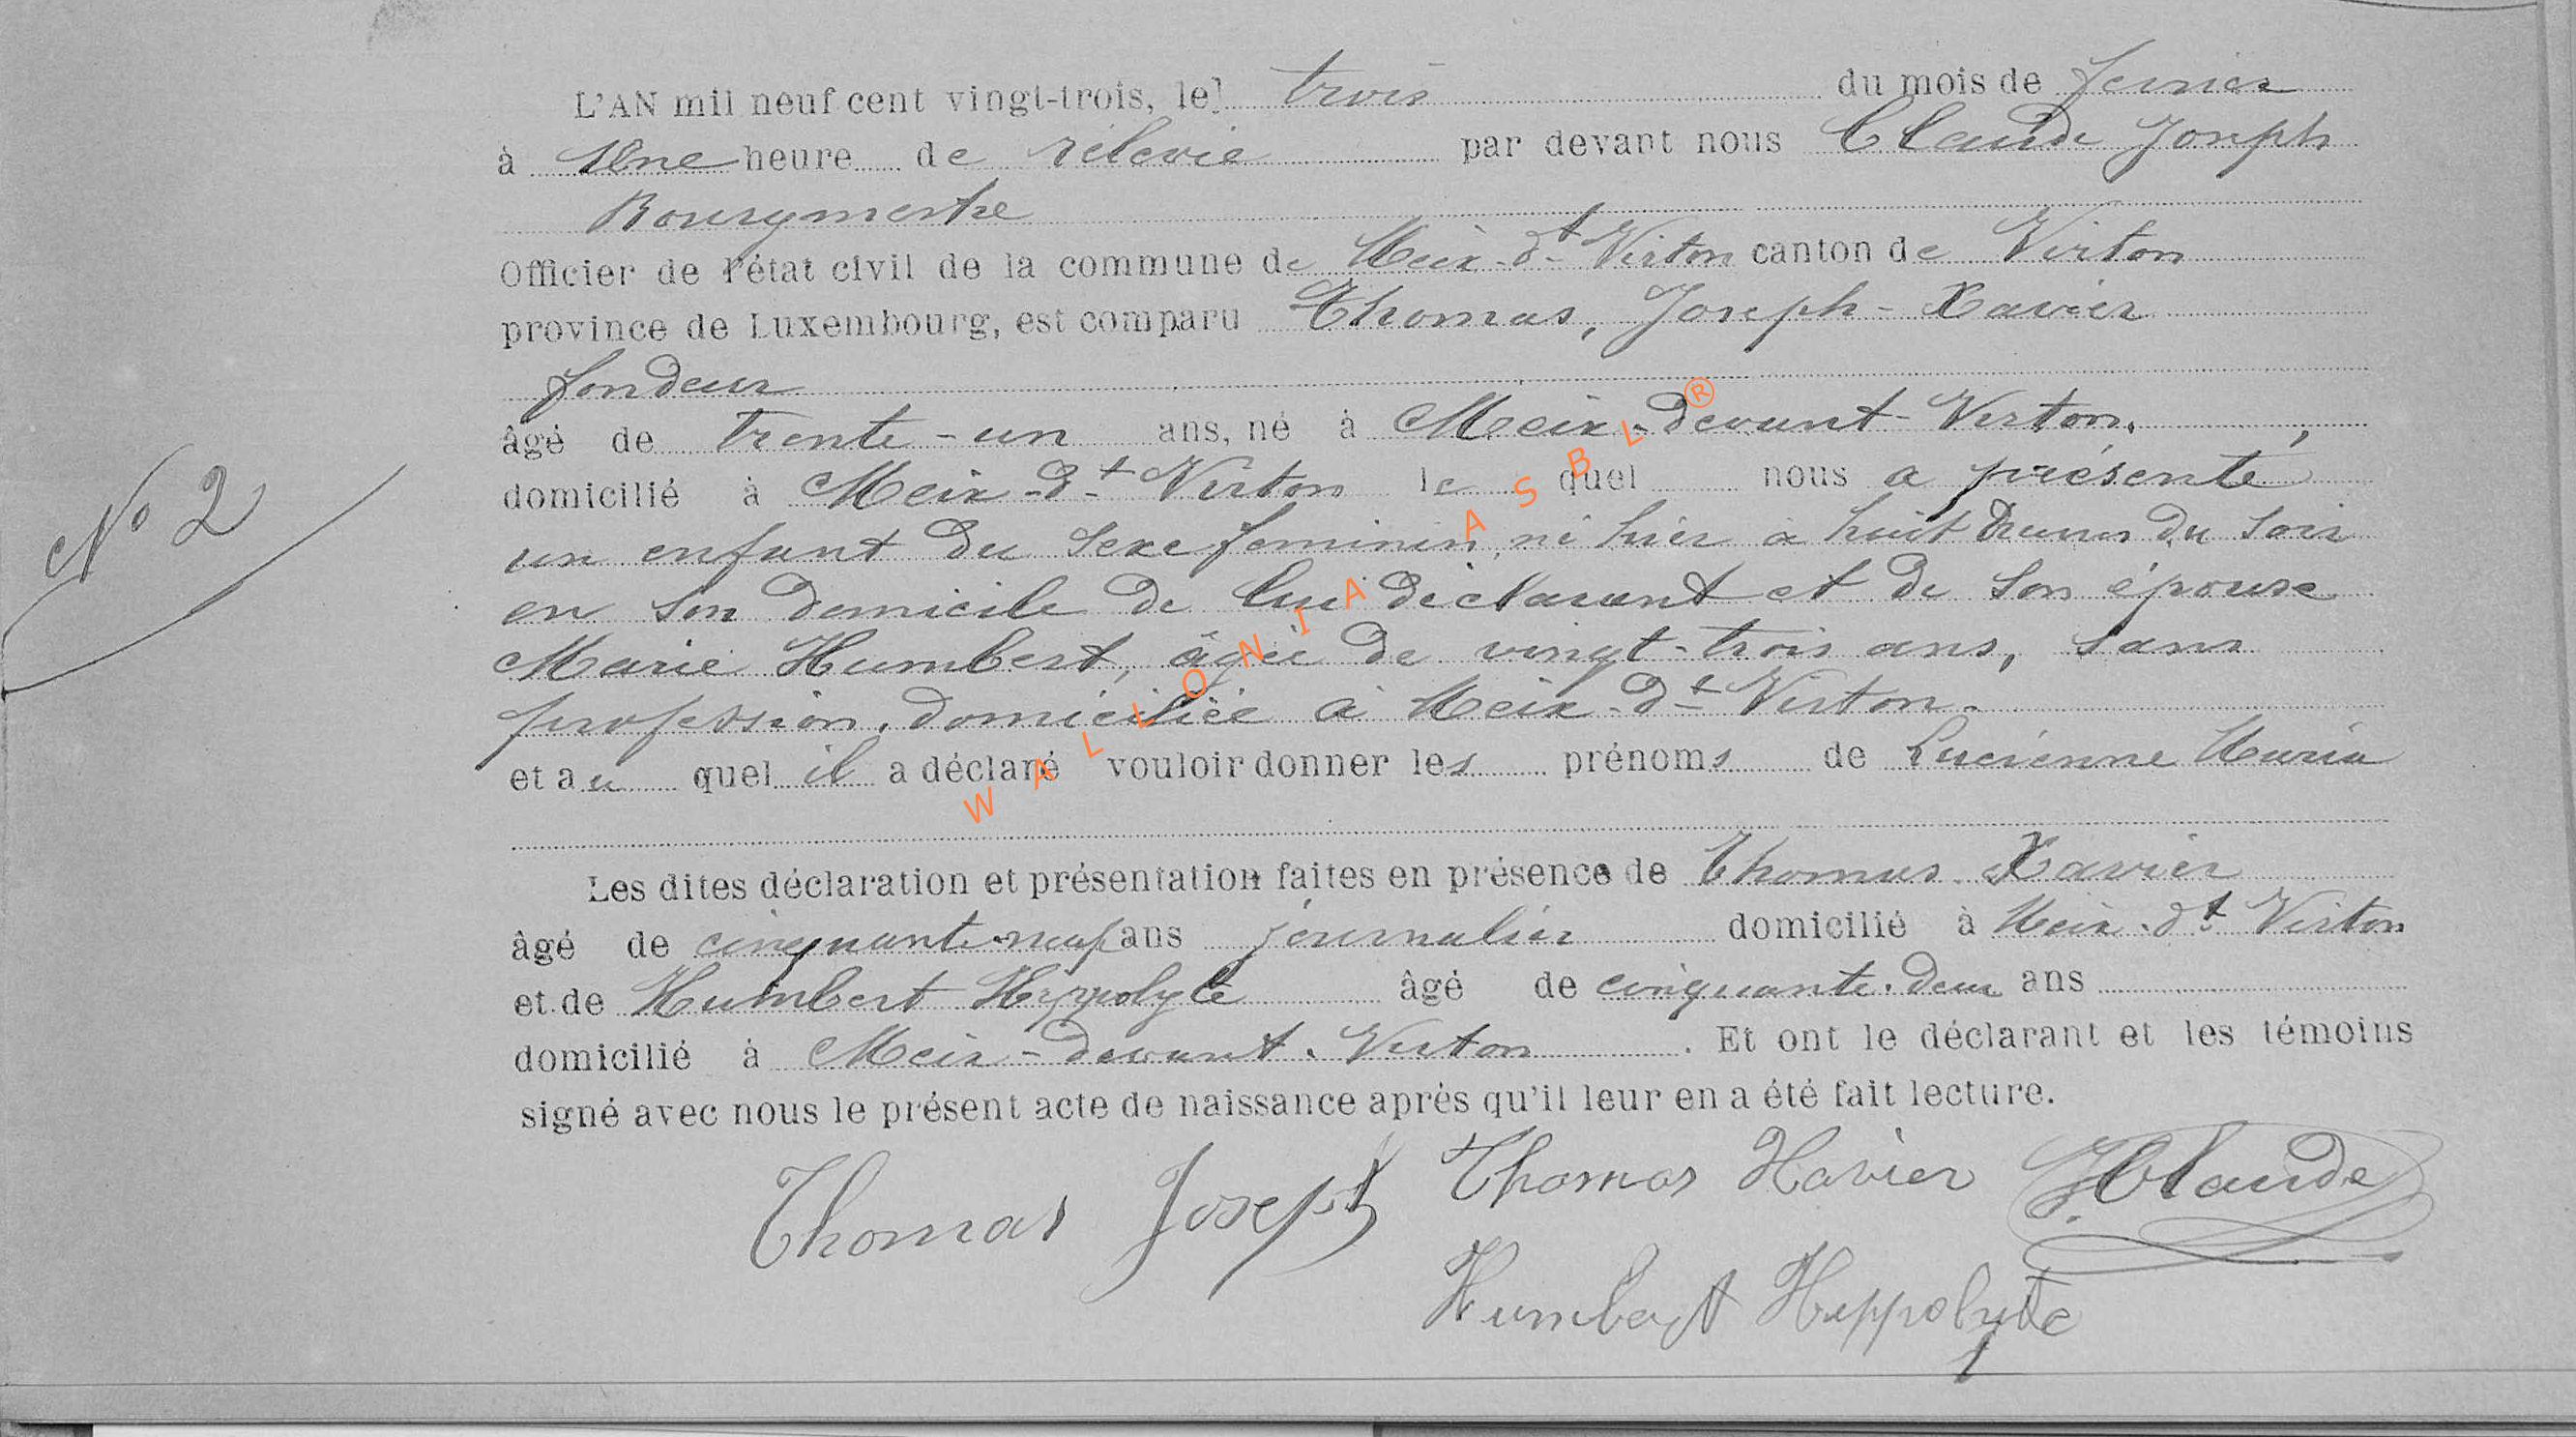 L'AN mil neuf cent vingt-trois, le trois du mois de fevrier
à Une heure de rélevée par devant nous Claude Joseph
Bourgmestre
Officier de l'état civil de la commune de Meix-dt Virton canton de Virton
province de Luxembourg, est comparu Thomas, Joseph-Xavier
fondeur
âgé de trente-un ans, né à Meix-devant-Virton,
domicilié à Meix-dt Virton le quel nous a présenté
N° 2
un enfant du sexe feminin, né hier à huit heures du soir
en son domicile de lui déclarant et de son épouse
Marie Humbert, âgée de vingt-trois ans, sans
profession, domiciliée à Meix-dt Virton.
et au quel il a déclaré vouloir donner les prénoms de Lucienne Maria
Les dites déclaration et présentation faites en présence de Thomas Xavier
âgé de cinquante-neuf ans journalier domicilié à Meix-dt Virton
et de Humbert Hyppolyte âgé de cinquante-deux ans
domicilié à Meix-devant-Virton. Et ont le déclarant et les témoins
signé avec nous le présent acte de naissance après qu'il leur en a été fait lecture.
Thomas Joseph Thomas Xavier J Claude
Humbert Hyppolyte
WALLONIA ASBL®